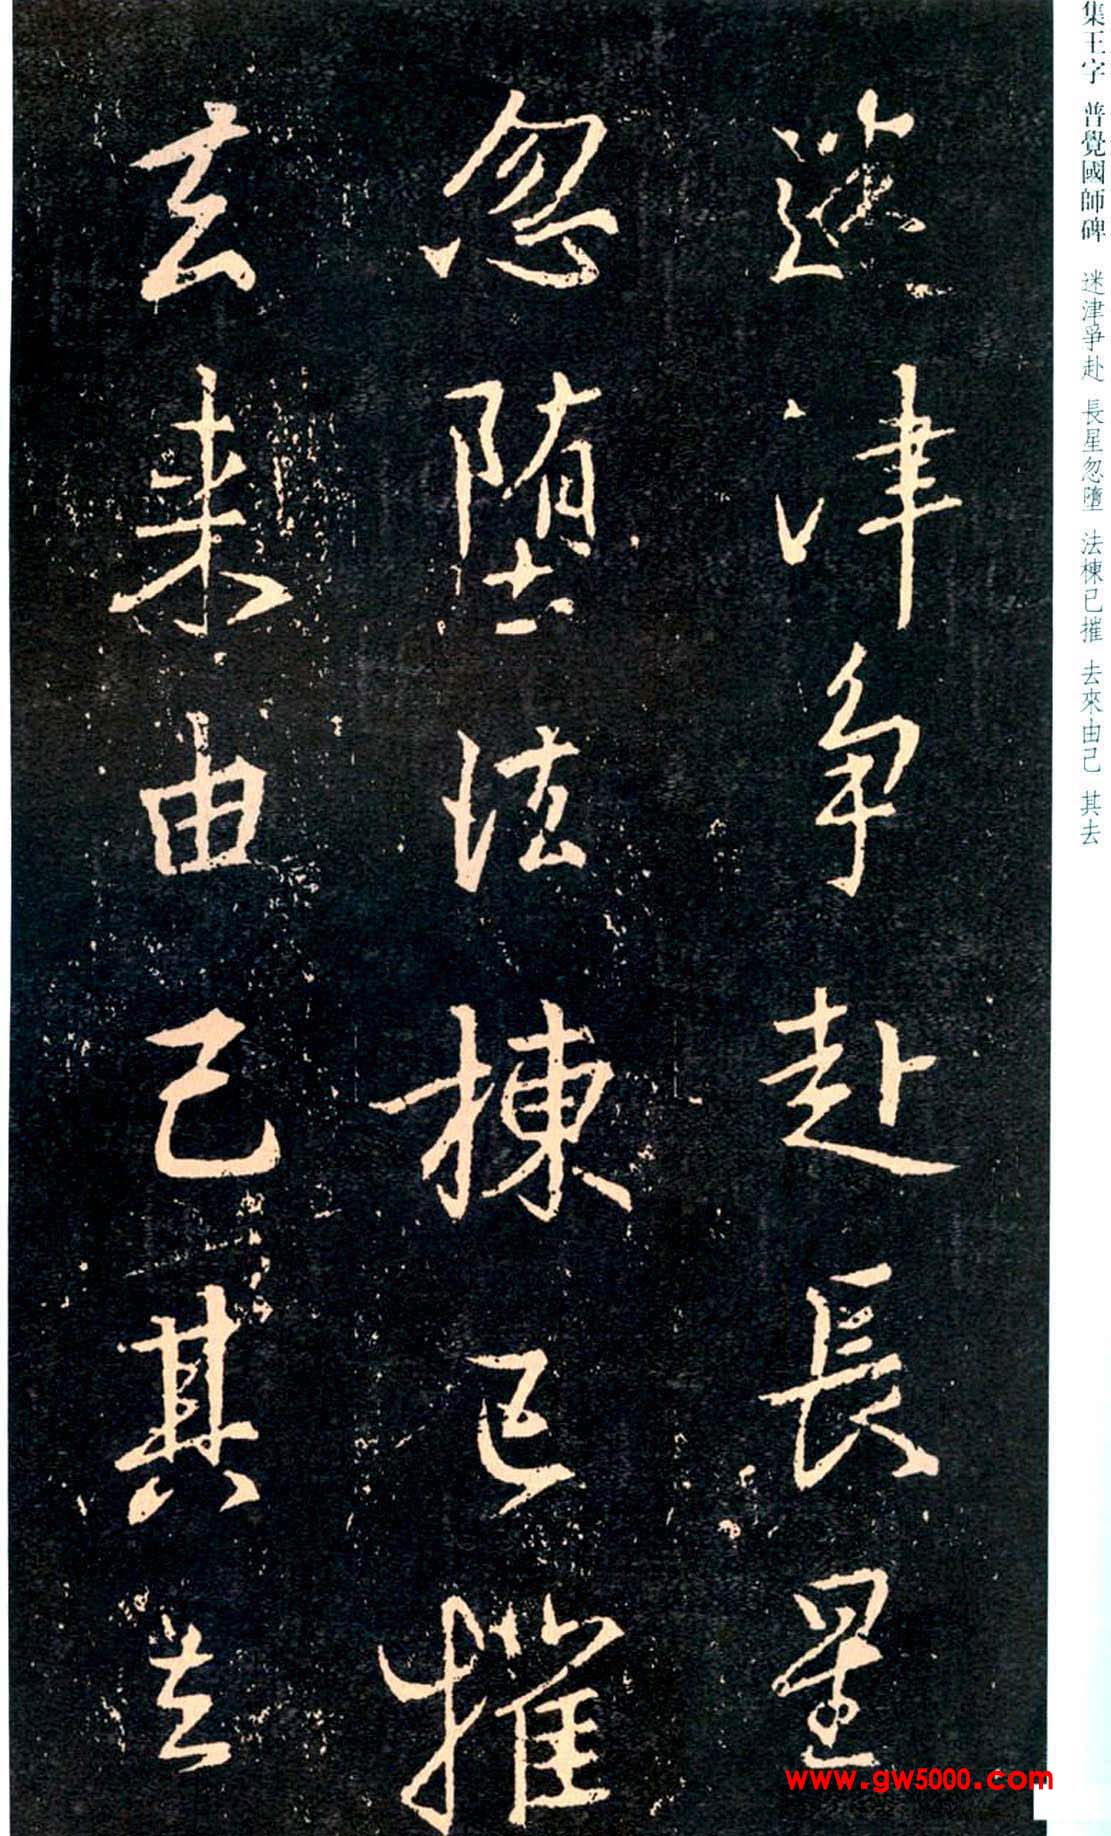 集王字 普覺國師碑 迷津爭赴 長星忽墮 法棟已摧 去來由己 其去
迷津争赴長星
忽堕法棟已摧
去来由己其去
www.gw5000.com